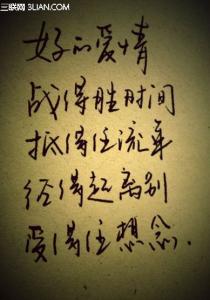 三联网 3LIAN.COM
好的爱情
战得胜时间
抵得住流年
经得起离别
受得住想念.